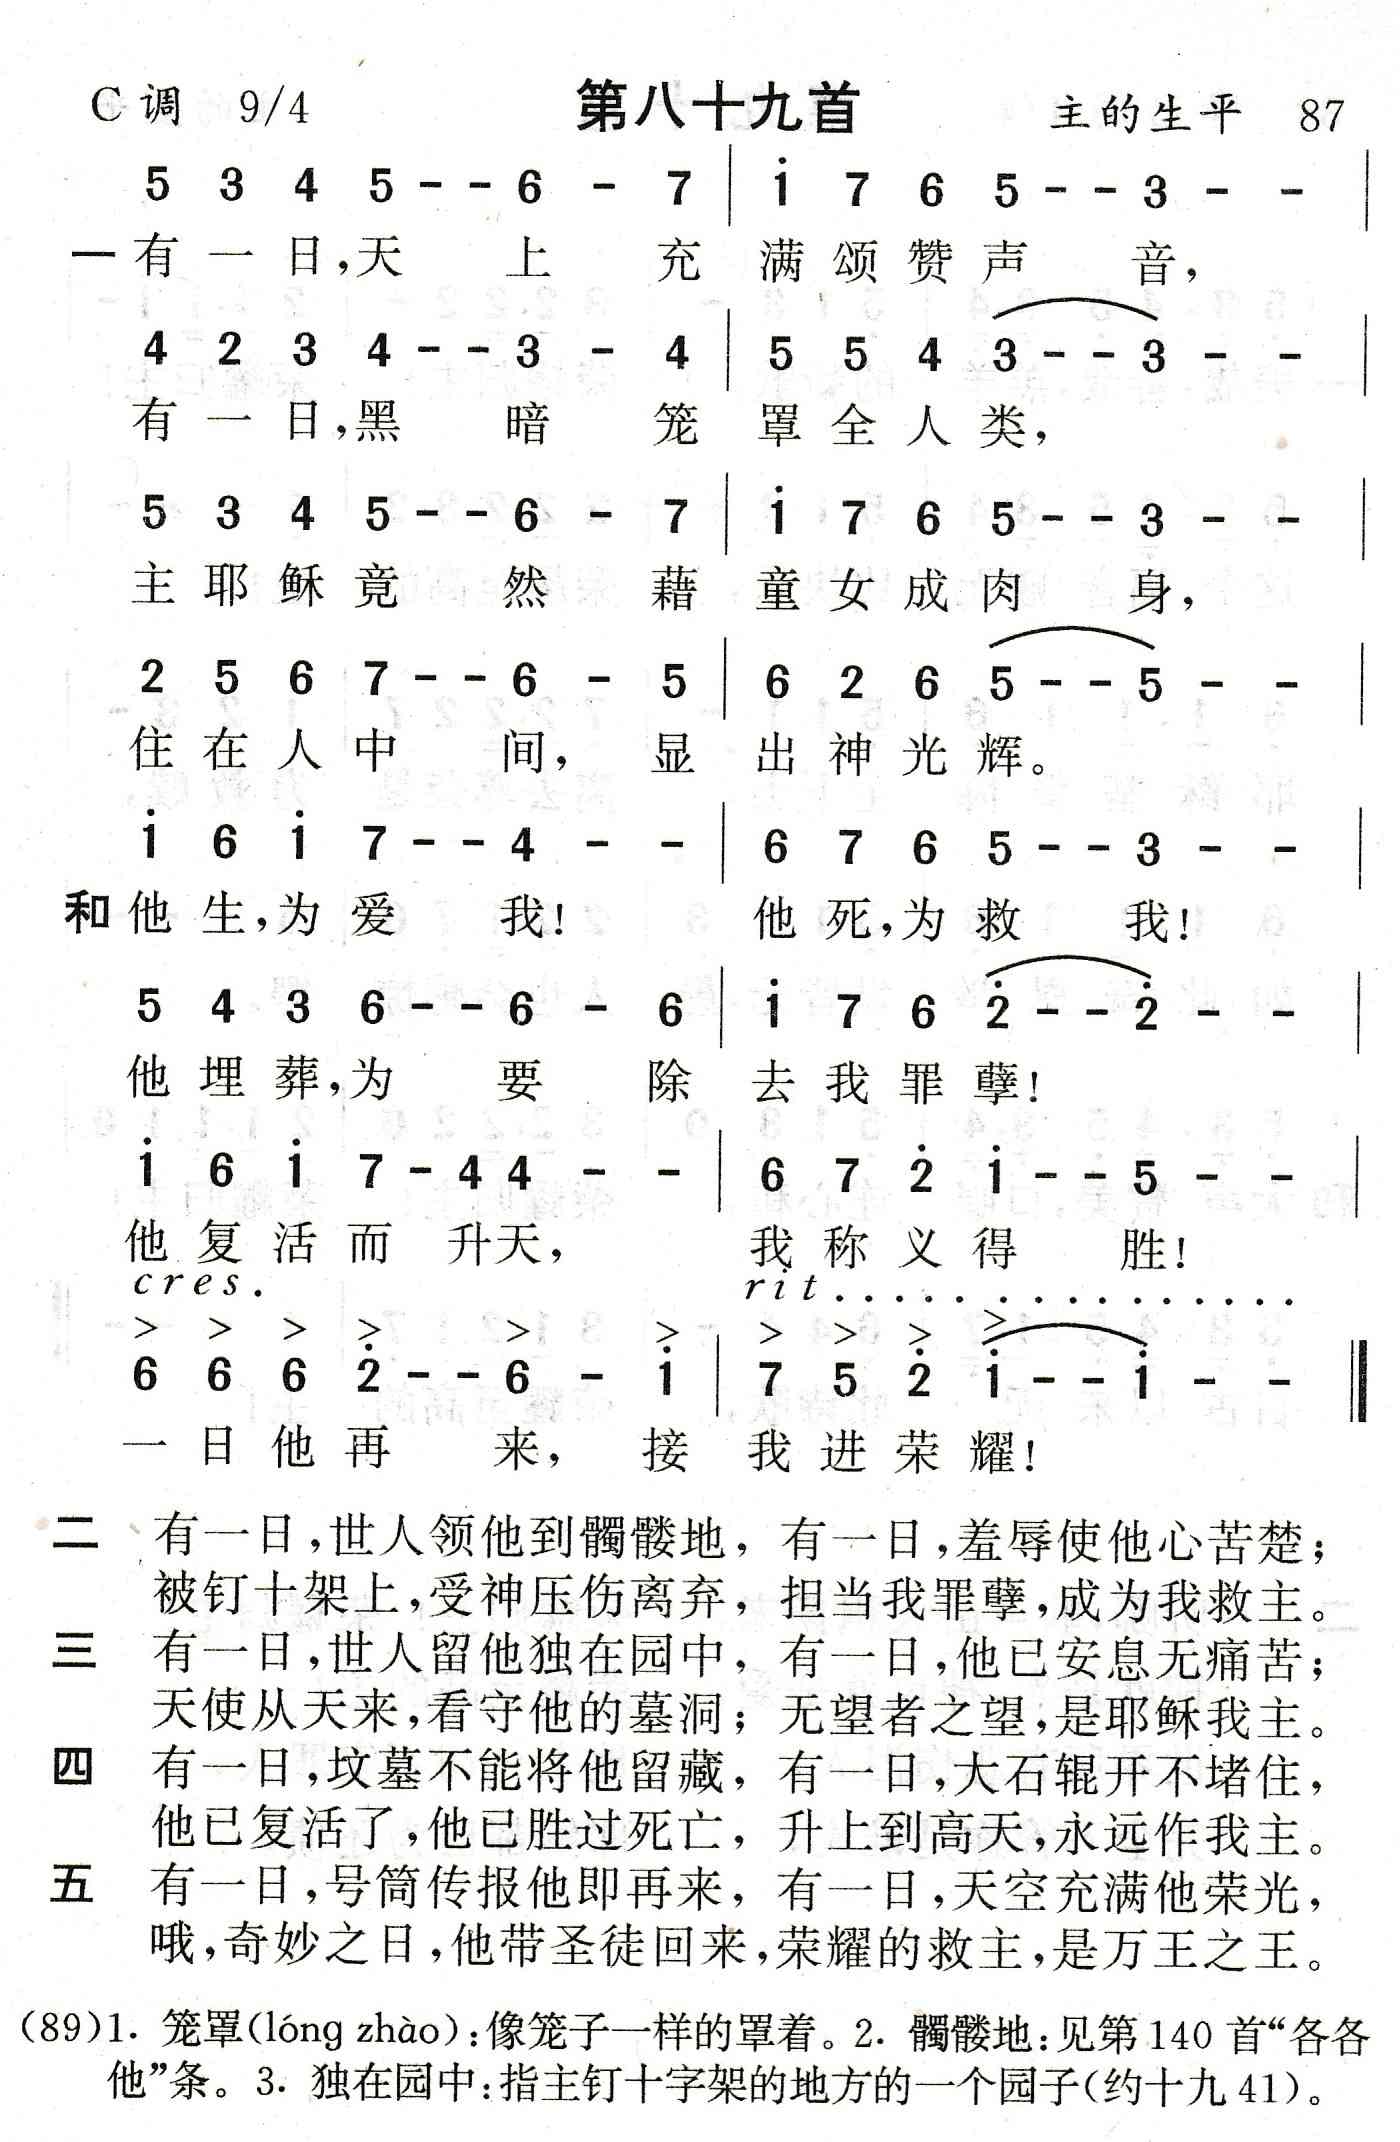 C调 9/4 第八十九首 主的生平 87
5 3 4 5 - - 6 - 7 | i̇ 7 6 5 - - 3 - - |
一 有一日,天上充满颂赞声音,
4 2 3 4 - - 3 - 4 | 5 5 4 3 - - 3 - - |
有一日,黑暗笼罩全人类,
5 3 4 5 - - 6 - 7 | 1̇ 7 6 5 - - 3 - - |
主耶稣竟然藉童女成肉身,
2 5 6 7 - - 6 - 5 | 6 2 6 5 - - 5 - - |
住在人中间,显出神光辉。
1̇ 6 1̇ 7 - - 4 - - | 6 7 6 5 - - 3 - - |
和 他生,为爱我!他死,为救我!
5 4 3 6 - - 6 - 6 | 1̇ 7 6 2̇ - - 2̇ - - |
他埋葬,为要除去我罪孽!
1̇ 6 1̇ 7 - 4 4 - - | 6 7 2̇ 1̇ - - 5 - - |
他复活而升天,我称义得胜!
cres. rit................
> > > > > > > > > >
6 6 6 2̇ - - 6 - 1̇ | 7 5 2̇ 1̇ - - 1̇ - - ‖
一日他再来,接我进荣耀!
二 有一日,世人领他到髑髅地,有一日,羞辱使他心苦楚;
被钉十架上,受神压伤离弃,担当我罪孽,成为我救主。
三 有一日,世人留他独在园中,有一日,他已安息无痛苦;
天使从天来,看守他的墓洞;无望者之望,是耶稣我主。
四 有一日,坟墓不能将他留藏,有一日,大石辊开不堵住,
他已复活了,他已胜过死亡,升上到高天,永远作我主。
五 有一日,号筒传报他即再来,有一日,天空充满他荣光,
哦,奇妙之日,他带圣徒回来,荣耀的救主,是万王之王。
(89)1. 笼罩(lóng zhào):像笼子一样的罩着。2. 髑髅地:见第140首“各各
他”条。3. 独在园中:指主钉十字架的地方的一个园子(约十九41)。